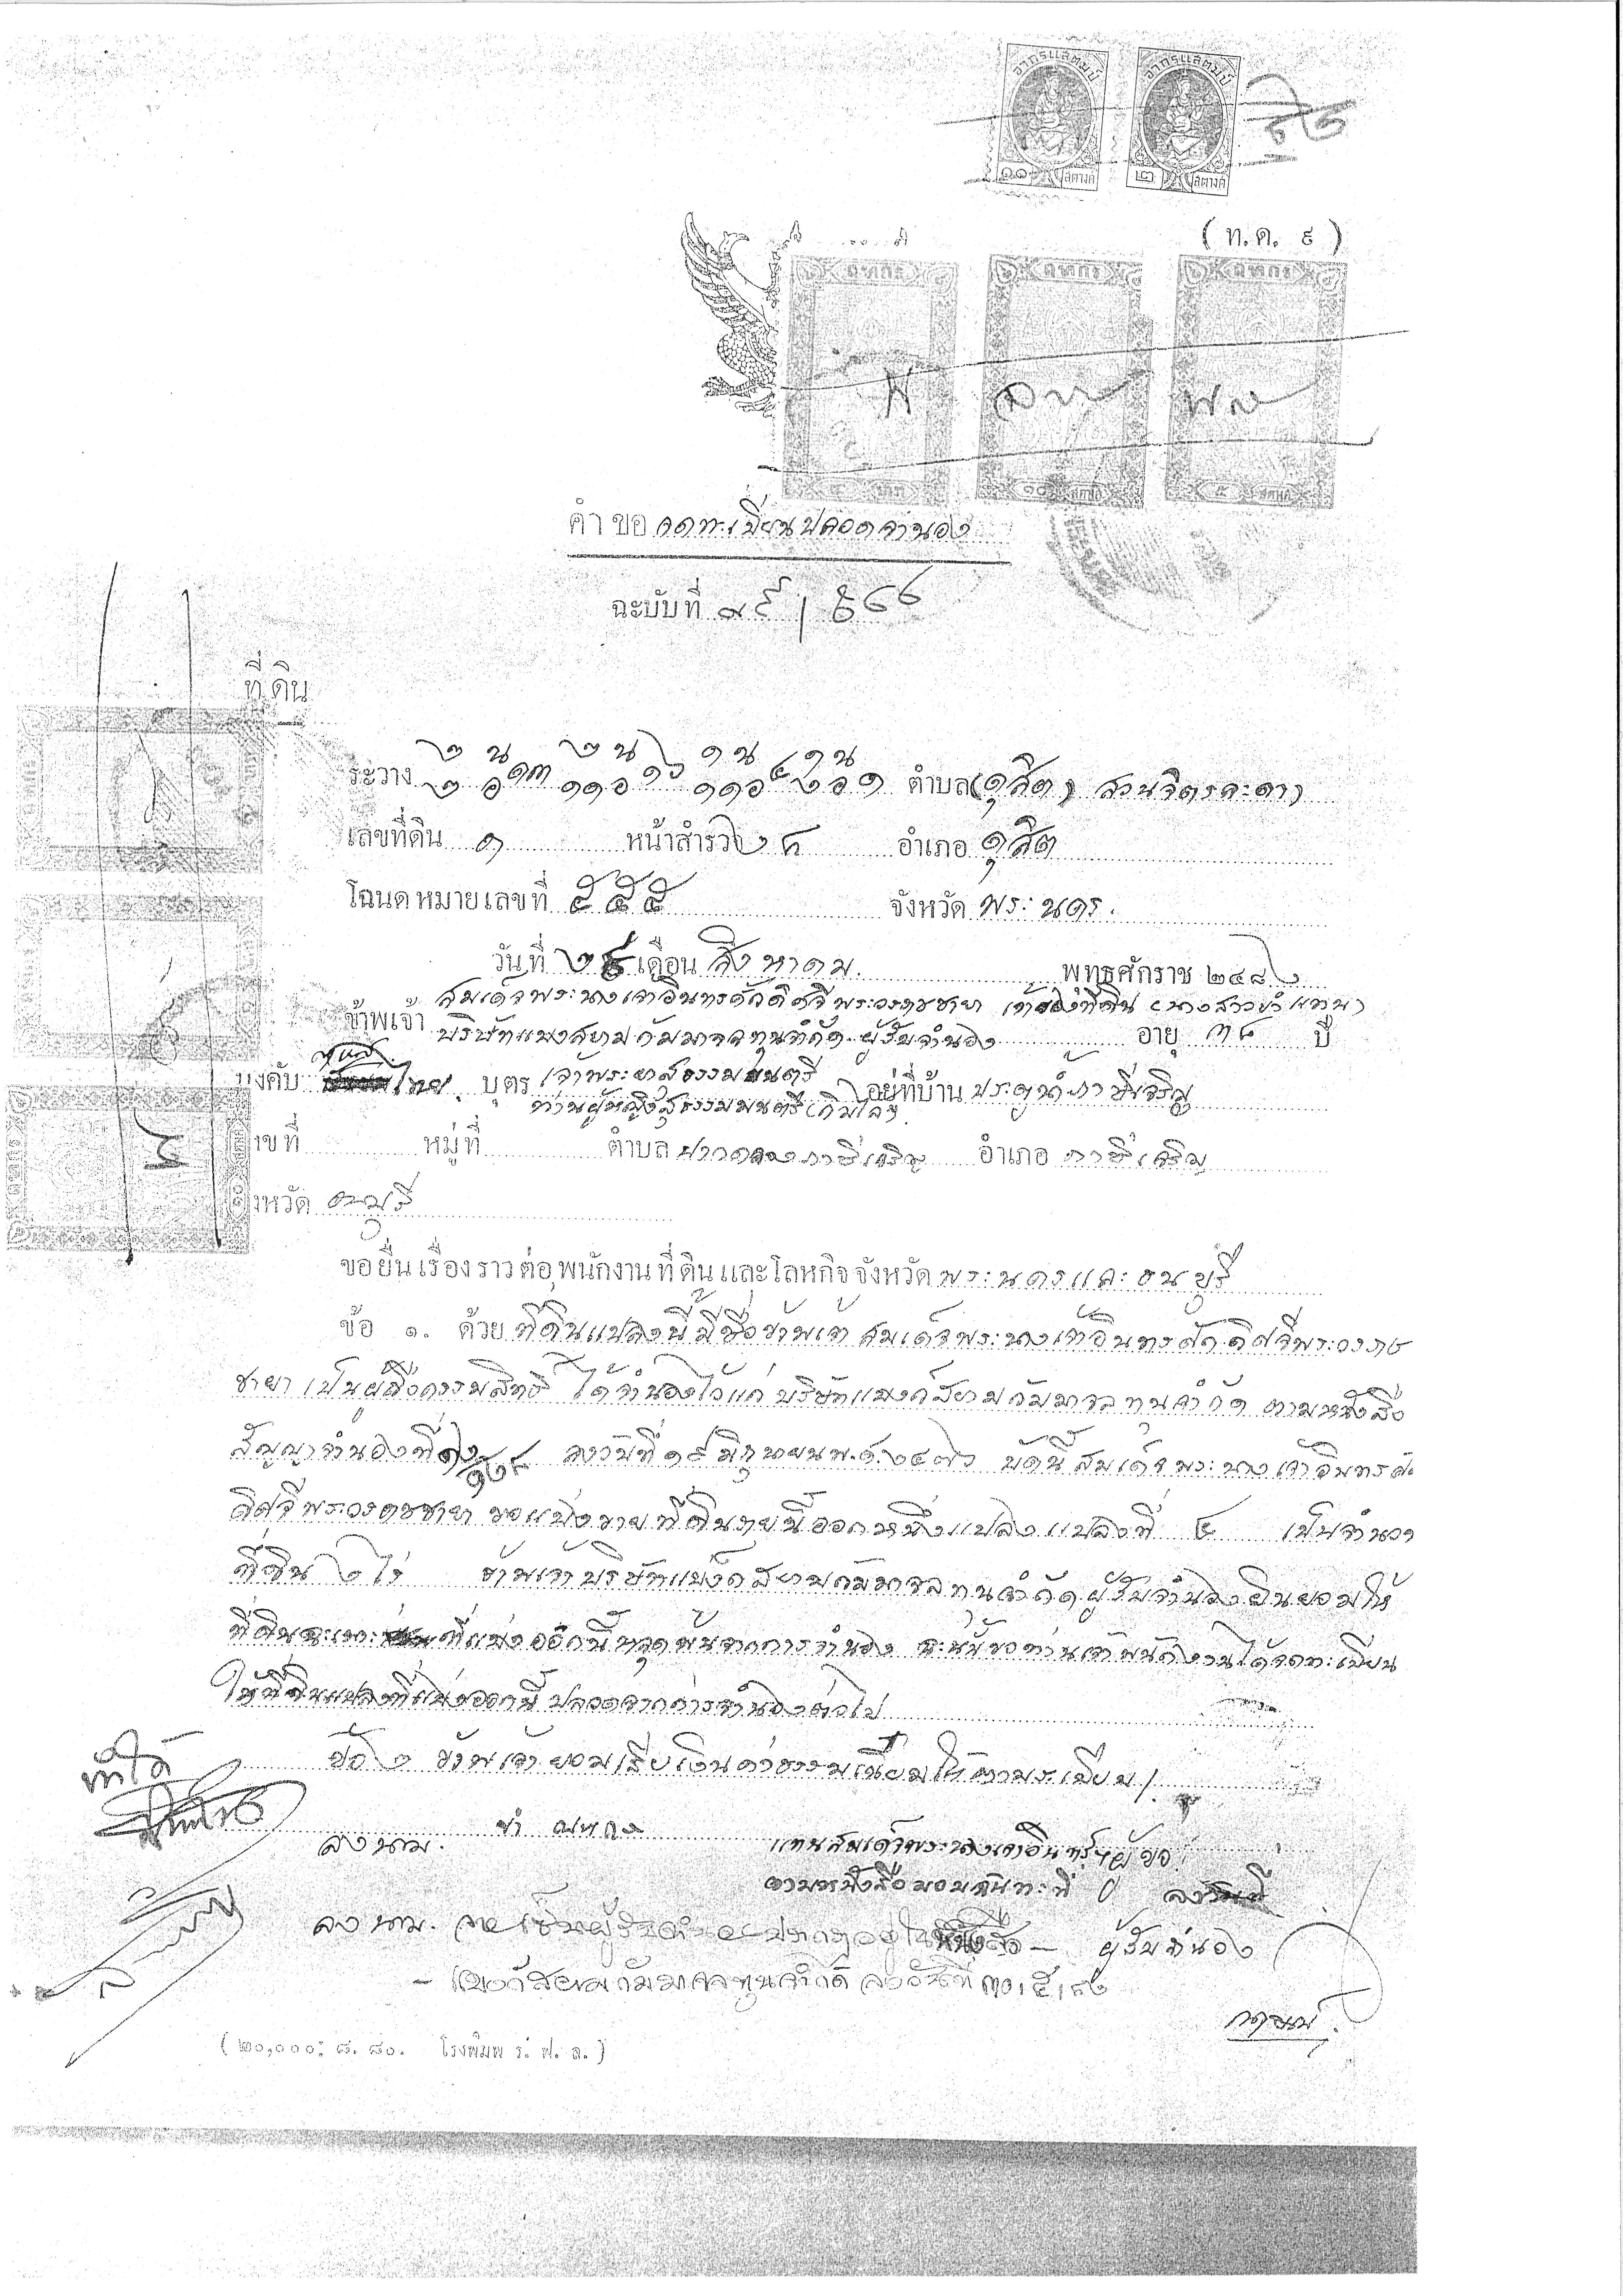 อากรแสตมป์ อากรแสตมป์
๑๑ สตางค์ ๒ สตางค์
( ท.ด. ๙ )
คำขอ จดทะเบียนปลอดจำนอง
ฉะบับที่
ที่ดิน
ระวาง ตำบล (ดุสิต) สวนจิตรลดา
เลขที่ดิน ๑ หน้าสำรวจ อำเภอ ดุสิต
โฉนดหมายเลขที่ ๕๕๕ จังหวัด พระนคร.
วันที่ เดือน สิงหาคม. พุทธศักราช ๒๔๘๒
สมเด็จพระนางเจ้าอินทรศักดิศจีพระวรราชชายา เจ้าของที่ดิน (นางสาวขำ แทน)
ข้าพเจ้า บริษัทแบงสยามกัมมาจลทุนจำกัด ผู้รับจำนอง อายุ ๓๘ ปี
บังคับ ไทย. บุตร เจ้าพระยาสุธรรมมนตรี อยู่ที่บ้าน ประตูน้ำภาษีเจริญ
ท่านผู้หญิงสุธรรมมนตรี (กิมไล้)
เลขที่ หมู่ที่ ตำบล ปากคลองภาษีเจริญ อำเภอ ภาษีเจริญ
จังหวัด ธนบุรี
ขอยื่นเรื่องราวต่อพนักงานที่ดินและโลหกิจจังหวัด พระนครและธนบุรี
ข้อ ๑. ด้วย ที่ดินแปลงนี้มีชื่อข้าพเจ้า สมเด็จพระนางเจ้าอินทรศักดิศจีพระวรราช
ชายา เป็นผู้ถือกรรมสิทธิ์ ได้จำนองไว้แก่ บริษัทแบงก์สยามกัมมาจลทุนจำกัด ตามหนังสือ
สัญญาจำนองที่ ลงวันที่ ๑๙ มิถุนายน พ.ศ. ๒๔๗๖ บัดนี้ สมเด็จพระนางเจ้าอินทรศัก
ดิศจีพระวรราชชายา ขอแบ่งขายที่ดินรายนี้ออกหนึ่งแปลง แปลงที่ ๕ เป็นจำนวน
ที่ดิน ๒ ไร่ ข้าพเจ้าบริษัทแบ๊งก์สยามกัมมาจลทุนจำกัดผู้รับจำนองยินยอมให้
ที่ดินฉะเพาะ ที่แบ่งออกนี้หลุดพ้นจากการจำนอง ฉะนั้นขอท่านเจ้าพนักงานได้จดทะเบียน
ให้ที่ดินแปลงที่แบ่งออกนี้ปลอดจากการจำนองต่อไป
ข้อ ๒ ข้าพเจ้ายอมเสียเงินค่าธรรมเนียมให้ตามระเบียบ/
ทำได้
ลงนาม. ขำ ณหลง แทนสมเด็จพระนางเจ้าอินทร์ฯ ผู้ขอ
ตามหนังสือมอบฉันทะที่ ลงวันที่
ลงนาม. ลายเซ็นผู้รับจำนองปรากฏอยู่ในหนังสือ – ผู้รับจำนอง
– แบงก์สยามกัมมาจลทุนจำกัด ลงวันที่ ๓๐,๕,๘๒
(๒๐,๐๐๐: ๘. ๘๐. โรงพิมพ์ ร. ฟ. ล.)